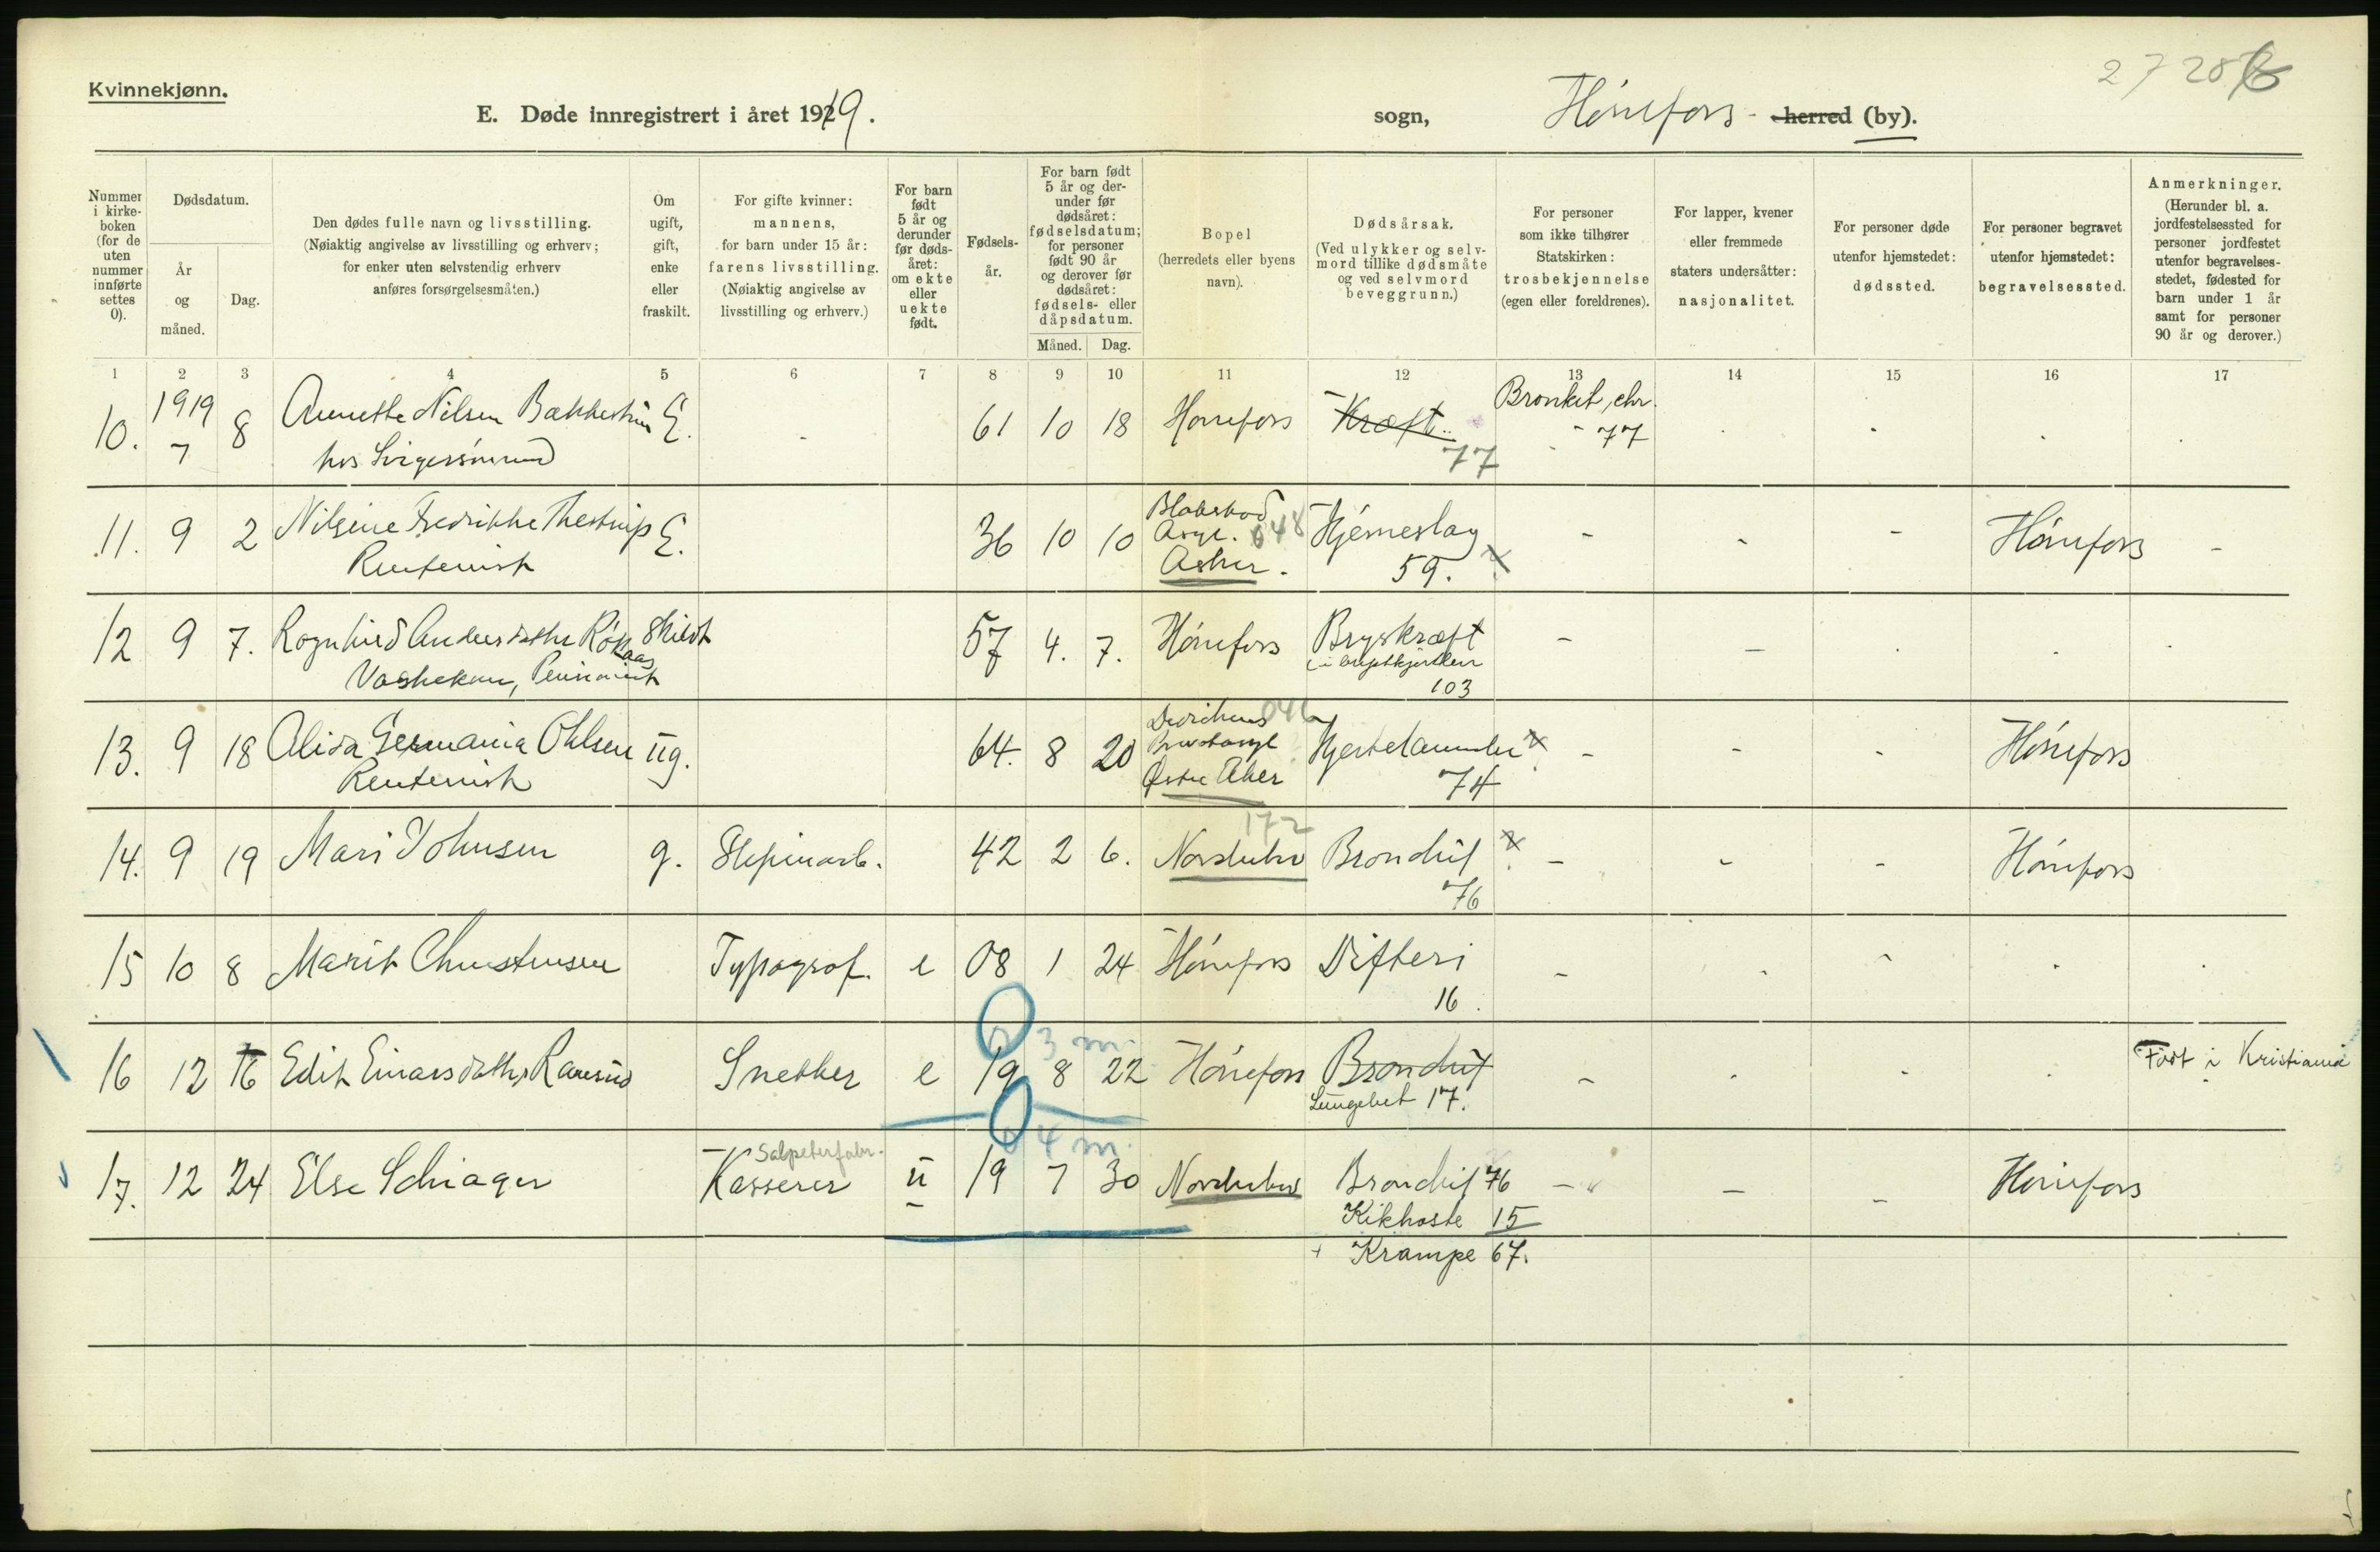 Kvinnekjønn.
27 28
E. Døde innregistrert i året 1919. sogn, Hönefoss herred (by).
Nummer i kirkeboken (for de uten nummer innførte settes 0).
Dødsdatum.
År og måned.
Dag.
Den dødes fulle navn og livsstilling.
(Nøiaktig angivelse av livsstilling og erhverv;
for enker uten selvstendig erhverv
anføres forsørgelsesmåten.)
Om ugift, gift, enke eller fraskilt.
For gifte kvinner:
mannens,
for barn under 15 år:
farens livsstilling.
(Nøiaktig angivelse av
livsstilling og erhverv.)
For barn født 5 år og derunder før dødsåret: om ekte eller uekte født.
Fødselsår.
For barn født 5 år og derunder før dødsåret: fødselsdatum; for personer født 90 år og derover før dødsåret: fødsels- eller dåpsdatum.
Måned. Dag.
Bopel
(herredets eller byens
navn).
Dødsårsak.
(Ved ulykker og selvmord tillike dødsmåte
og ved selvmord
beveggrunn.)
For personer
som ikke tilhører
Statskirken:
trosbekjennelse
(egen eller foreldrenes).
For lapper, kvener
eller fremmede
staters undersåtter:
nasjonalitet.
For personer døde
utenfor hjemstedet:
dødssted.
For personer begravet
utenfor hjemstedet:
begravelsessted.
Anmerkninger.
(Herunder bl. a.
jordfestelsessted for
personer jordfestet
utenfor begravelsesstedet, fødested for
barn under 1 år
samt for personer
90 år og derover.)
1 2 3 4 5 6 7 8 9 10 11 12 13 14 15 16 17
10. 1919 7 8 Annette Nilsen E. 61 10 18 Hönefoss Kræft 77 Bronkit, chr. 77
hos Svigersönnen
11. 9 2 Nilsine Fredrikke Thestrup E. 36 10 10 Blakstad Asyl. 648 Asker. Hjerneslag 59. Hönefoss
Rentenist
12 9 7. Ragnhild Andersdatter Skilt 57 4. 7. Hönefoss Brystkræft 103
13. 9 18 Alida Germania Ohlsen ug. 64. 8 20 Østre Aker Hjertelammelse 74 Hönefoss
Rentenist
14. 9 19 Mari Johnsen g. Sliperiarb. 42 2 6. 172 Norderhov Bronchit 76 Hönefoss
15 10 8 Marit Christensen Typograf. e 08 1 24 Hönefoss Difteri 16
16 12 16 Edit Einarsdatter Snekker e 19 8 22 Hönefoss Bronchit Født i Kristiania
0 3 m. Lungebet 17.
17. 12 24 Else Schiager Kasserer Salpeterfabr. u 19 7 30 Norderhov Bronchit 76 Hönefoss
0 4 m. Kikhoste 15
+ Krampe 67.